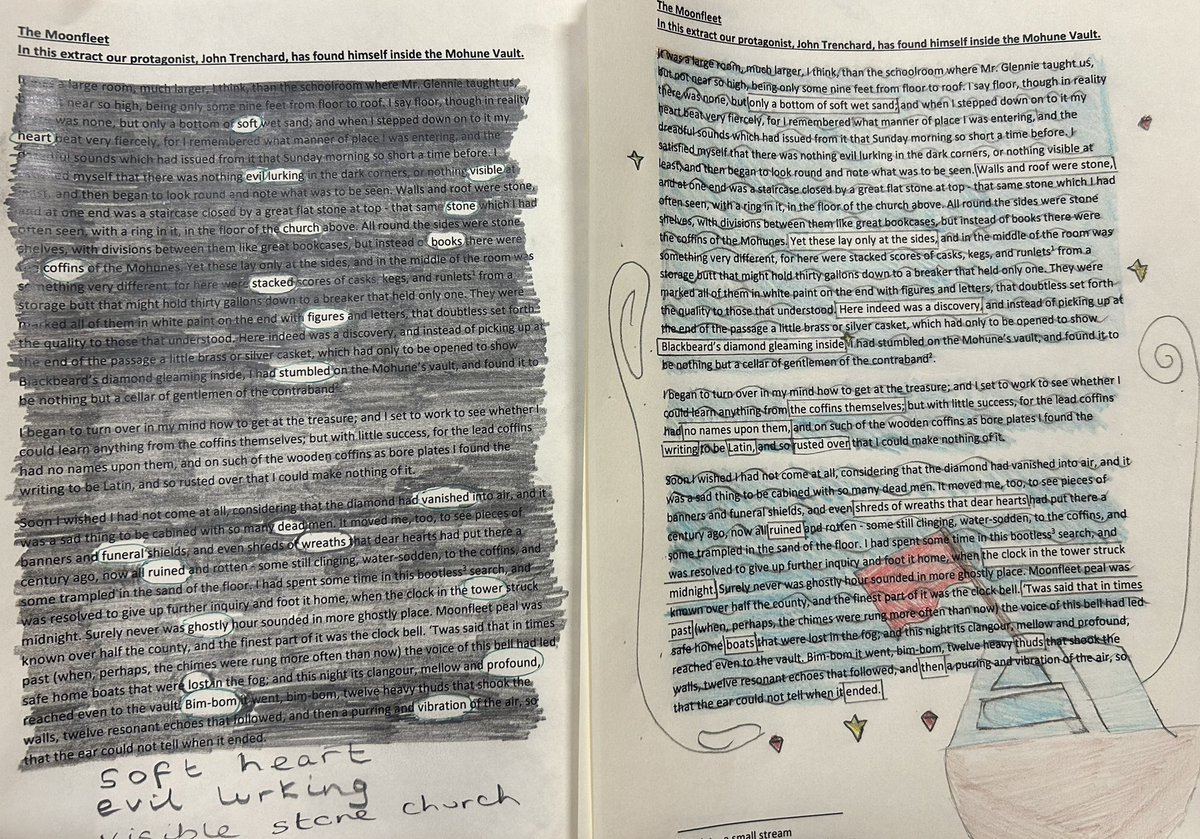 The Moonfleet
In this extract our protagonist, John Trenchard, has found himself inside the Mohune Vault.
a large room, much larger, I think, than the schoolroom where Mr. Glennie taught us,
near so high, being only some nine feet from floor to roof. I say floor, though in reality
was none, but only a bottom of soft wet sand; and when I stepped down on to it my
heart beat very fiercely, for I remembered what manner of place I was entering, and the
sounds which had issued from it that Sunday morning so short a time before. I
myself that there was nothing evil lurking in the dark corners, or nothing visible at
least, and then began to look round and note what was to be seen. Walls and roof were stone,
and at one end was a staircase closed by a great flat stone at top - that same stone which I had
often seen, with a ring in it, in the floor of the church above. All round the sides were stone
shelves, with divisions between them like great bookcases, but instead of books there were
coffins of the Mohunes. Yet these lay only at the sides, and in the middle of the room was
something very different, for here were stacked scores of casks, kegs, and runlets¹ from a
storage butt that might hold thirty gallons down to a breaker that held only one. They were
marked all of them in white paint on the end with figures and letters, that doubtless set forth
the quality to those that understood. Here indeed was a discovery, and instead of picking up at
the end of the passage a little brass or silver casket, which had only to be opened to show
Blackbeard's diamond gleaming inside, I had stumbled on the Mohune's vault, and found it to
be nothing but a cellar of gentlemen of the contraband²
I began to turn over in my mind how to get at the treasure; and I set to work to see whether I
could learn anything from the coffins themselves; but with little success, for the lead coffins
had no names upon them, and on such of the wooden coffins as bore plates I found the
writing to be Latin, and so rusted over that I could make nothing of it.
Soon I wished I had not come at all, considering that the diamond had vanished into air, and it
was a sad thing to be cabined with so many dead men. It moved me, too, to see pieces of
banners and funeral shields, and even shreds of wreaths that dear hearts had put there a
century ago, now all ruined and rotten - some still clinging, water-sodden, to the coffins, and
some trampled in the sand of the floor. I had spent some time in this bootless³ search, and
was resolved to give up further inquiry and foot it home, when the clock in the tower struck
midnight. Surely never was ghostly hour sounded in more ghostly place. Moonfleet peal was
known over half the county, and the finest part of it was the clock bell. 'Twas said that in times
past (when, perhaps, the chimes were rung more often than now) the voice of this bell had led
safe home boats that were lost in the fog; and this night its clangour, mellow and profound,
reached even to the vault. Bim-bom it went, bim-bom, twelve heavy thuds that shook the
walls, twelve resonant echoes that followed, and then a purring and vibration of the air, so
that the ear could not tell when it ended.
soft heart
evil lurking
visible stone church
The Moonfleet
In this extract our protagonist, John Trenchard, has found himself inside the Mohune Vault.
It was a large room, much larger, I think, than the schoolroom where Mr. Glennie taught us,
but not near so high, being only some nine feet from floor to roof. I say floor, though in reality
there was none, but only a bottom of soft wet sand; and when I stepped down on to it my
heart beat very fiercely, for I remembered what manner of place I was entering, and the
dreadful sounds which had issued from it that Sunday morning so short a time before. I
satisfied myself that there was nothing evil lurking in the dark corners, or nothing visible at
least, and then began to look round and note what was to be seen. Walls and roof were stone,
and at one end was a staircase closed by a great flat stone at top - that same stone which I had
often seen, with a ring in it, in the floor of the church above. All round the sides were stone
shelves, with divisions between them like great bookcases, but instead of books there were
the coffins of the Mohunes. Yet these lay only at the sides, and in the middle of the room was
something very different, for here were stacked scores of casks, kegs, and runlets¹ from a
storage butt that might hold thirty gallons down to a breaker that held only one. They were
marked all of them in white paint on the end with figures and letters, that doubtless set forth
the quality to those that understood. Here indeed was a discovery, and instead of picking up at
the end of the passage a little brass or silver casket, which had only to be opened to show
Blackbeard's diamond gleaming inside, I had stumbled on the Mohune's vault, and found it to
be nothing but a cellar of gentlemen of the contraband².
I began to turn over in my mind how to get at the treasure; and I set to work to see whether I
could learn anything from the coffins themselves; but with little success, for the lead coffins
had no names upon them, and on such of the wooden coffins as bore plates I found the
writing to be Latin, and so rusted over that I could make nothing of it.
Soon I wished I had not come at all, considering that the diamond had vanished into air, and it
was a sad thing to be cabined with so many dead men. It moved me, too, to see pieces of
banners and funeral shields, and even shreds of wreaths that dear hearts had put there a
century ago, now all ruined and rotten - some still clinging, water-sodden, to the coffins, and
some trampled in the sand of the floor. I had spent some time in this bootless³ search, and
was resolved to give up further inquiry and foot it home, when the clock in the tower struck
midnight. Surely never was ghostly hour sounded in more ghostly place. Moonfleet peal was
known over half the county, and the finest part of it was the clock bell. 'Twas said that in times
past (when, perhaps, the chimes were rung more often than now) the voice of this bell had led
safe home boats that were lost in the fog; and this night its clangour, mellow and profound,
reached even to the vault. Bim-bom it went, bim-bom, twelve heavy thuds that shook the
walls, twelve resonant echoes that followed, and then a purring and vibration of the air, so
that the ear could not tell when it ended.
small stream